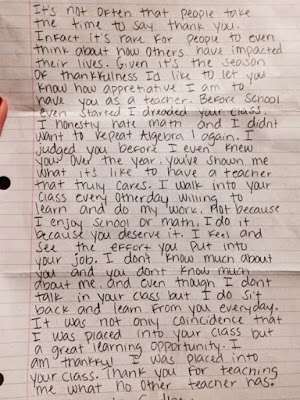 It's not often that people take
the time to say thank you.
Infact it's rare for people to even
think about how others have impacted
their lives. Given it's the season
of thankfulness I'd like to let you
know how appretiative I am to
have you as a teacher. Before school
even started I dreaded your class.
I honestly hate math and I didnt
want to repeat Algebra 1 again. I
judged you before I even knew
you. Over the year, you've shown me
what it's like to have a teacher
that truly cares. I walk into your
class every otherday willing to
learn and do my work. Not because
I enjoy school or math. I do it
because you deserve it. I feel and
see the effort you put into
your job. I don't know much about
you and you don't know much
about me. and even though I dont
talk in your class but I do sit
back and learn from you everyday.
It was not only coincidence that
I was placed into your class but
a great learning opportunity. I
am thankful I was placed into
your class. Thank you for teaching
me what no other teacher has.